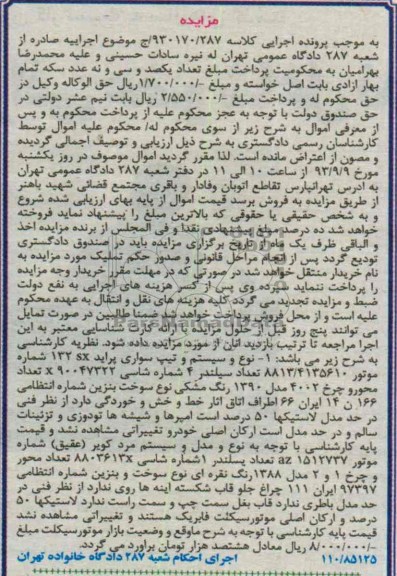 مزایده
به موجب پرونده اجرایی کلاسه ۹۳۰۱۷۰/۲۸۷/ج موضوع اجراییه صادره از
شعبه ۲۸۷ دادگاه عمومی تهران له نیره سادات حسینی و علیه محمدرضا
بهرامیان به محکومیت پرداخت مبلغ تعداد یکصد و سی و نه عدد سکه تمام
بهار ازادی بابت اصل خواسته و مبلغ -/۱/۷۰۰/۰۰۰ریال حق الوکاله وکیل در
حق محکوم له و پرداخت مبلغ -/۲/۵۵۰/۰۰۰ ریال بابت نیم عشر دولتی در
حق صندوق دولت با توجه به عجز محکوم علیه از پرداخت محکوم به و پس
از معرفی اموال به شرح زیر از سوی محکوم له/ محکوم علیه اموال توسط
کارشناسان رسمی دادگستری به شرح ذیل ارزیابی و توصیف اجمالی گردیده
و مصون از اعتراض مانده است. لذا مقرر گردید اموال موصوف در روز یکشنبه
مورخ ۹۳/۹/۹ از ساعت ۱۰ الی ۱۱ در دفتر شعبه ۲۸۷ دادگاه عمومی تهران
به ادرس تهرانپارس تقاطع اتوبان وفادار و باقری مجتمع قضائی شهید باهنر
از طریق مزایده به فروش برسد قیمت اموال از پایه بهای ارزیابی شده شروع
و به شخص حقیقی یا حقوقی که بالاترین مبلغ را پیشنهاد نماید فروخته
خواهد شد ده درصد مبلغ پیشنهادی نقدا و فی المجلس از برنده مزایده اخذ
و الباقی ظرف یک ماه از تاریخ برگزاری مزایده باید در صندوق دادگستری
تودیع گردد پس از انجام مراحل قانونی و صدور حکم تملیک مورد مزایده به
نام خریدار منتقل خواهد شد در صورتی که در مهلت مقرر خریدار وجه مزایده
را پرداخت ننماید سپرده وی پس از کسر هزینه های اجرایی به نفع دولت
ضبط و مزایده تجدید می گردد کلیه هزینه های نقل و انتقال به عهده محکوم
علیه است و از محل فروش پرداخت خواهد شد ضمنا طالبین در صورت تمایل
می توانند پنج روز قبل از حلول مزایده با ارائه کارت شناسایی معتبر به این
اجرا مراجعه تا ترتیب بازدید آنان از مورد مزایده داده شود. نظریه کارشناسی
به شرح زیر می باشد: ۱- نوع و سیستم و تیپ سواری پراید ۱۳۲ sx شماره
موتور ۸۸۱۳/۴۱۳۵۶۱۰ تعداد سیلندر ۴ شماره شاسی ۹۰۰۴۷۳۲۲ x تعداد
محورو چرخ ۲و۴ مدل ۱۳۹۰ رنگ مشکی نوع سوخت بنزین شماره انتظامی
۱۶۶ ن ۱۴ ایران ۶۶ اطراف اتاق اثار خط و خش و خوردگی دارد از نظر فنی
در حد مدل لاستیکها ۵۰ درصد است امپرها و شیشه ها تودوزی و تزئینات
سالم و در حد مدل است ارکان اصلی خودرو تغییراتی مشاهده نشد و قیمت
پایه کارشناسی با توجه به نوع و مدل و سیستم مرد کویر (عقیق) شماره
موتور ۱۵۱۲۷۳۷ az تعداد پسلندر ۱شماره شاسی ۸۸۰۳۶۱۳x تعداد محور
و چرخ ۱ و ۲ مدل ۱۳۸۸رنگ نقره ای نوع سوخت و بنزین شماره انتظامی
۹۷۳۹۷ ایران ۱۱۱ چراغ جلو قاب شکسته اینه ها روی ندارد از نظر فنی در
حد مدل باطری ندارد قاب بغل سمت چپ و سمت راست ندارد لاستیکها ۵۰
درصد و ارکان اصلی موتورسیکلت فابریک هستند و تغییراتی مشاهده نشد
قیمت پایه کارشناسی با توجه به شرح ماوقع و وضعیت بازار و موتورسیکلت مبلغ
-/۸/۰۰۰/۰۰۰ ریال معادل هشتصد هزار تومان براورد می گردد.
۱۱۰/۸۵۱۲۵ اجرای احکام شعبه ۲۸۷ دادگاه خانواده تهران